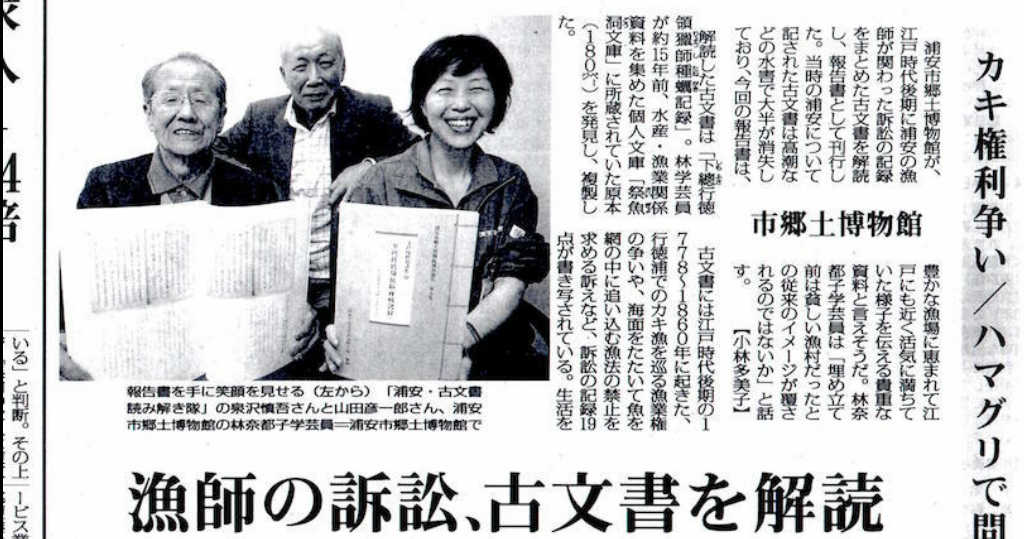 カキ権利争い／ハマグリで問
漁師の訴訟、古文書を解読
市郷土博物館
浦安市郷土博物館が、
江戸時代後期に浦安の漁
師が関わった訴訟の記録
をまとめた古文書を解読
し、報告書として刊行し
た。当時の浦安について
記された古文書は高潮な
どの水害で大半が消失し
ており、今回の報告書は、
豊かな漁場に恵まれて江
戸にも近く活気に満ちて
いた様子を伝える貴重な
資料と言えそうだ。林奈
都子学芸員は「埋め立て
前は貧しい漁村だったと
の従来のイメージが覆さ
れるのではないか」と話
す。　【小林多美子】
解読した古文書は「下總行徳
領獵師種蠣記録」。林学芸員
が約15年前、水産・漁業関係
資料を集めた個人文庫「祭魚
洞文庫」に所蔵されていた原本
（180㌻）を発見し、複製し
た。
古文書には江戸時代後期の1
778〜1860年に起きた、
行徳浦でのカキ漁を巡る漁業権
の争いや、海面をたたいて魚を
網の中に追い込む漁法の禁止を
求める訴えなど、訴訟の記録19
点が書き写されている。生活を
報告書を手に笑顔を見せる（左から）「浦安・古文書
読み解き隊」の泉沢慎吾さんと山田彦一郎さん、浦安
市郷土博物館の林奈都子学芸員＝浦安市郷土博物館で
4倍
いる」と判断。その上
ービス業